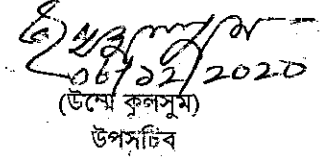 ০৮/১২/২০২০
(উম্মে কুলসুম)
উপসচিব